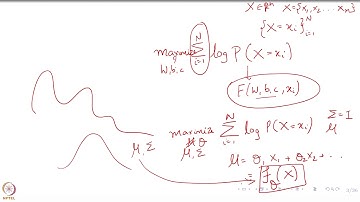 X ∈ ℝⁿ X = {x₁, x₂ ... xₙ}
{X = xᵢ}ᵢ₌₁ᴺ
maximize Σᵢ₌₁ᴺ log P(X = xᵢ)
W, b, c
F(W, b, c, xᵢ)
μ, Σ
Σ = I
maximize Σᵢ₌₁ᴺ log P(X = xᵢ) μ
θ
μ, Σ
μ = θ₁ x₁ + θ₂ x₂ + ...
= f_θ(X)
NPTEL